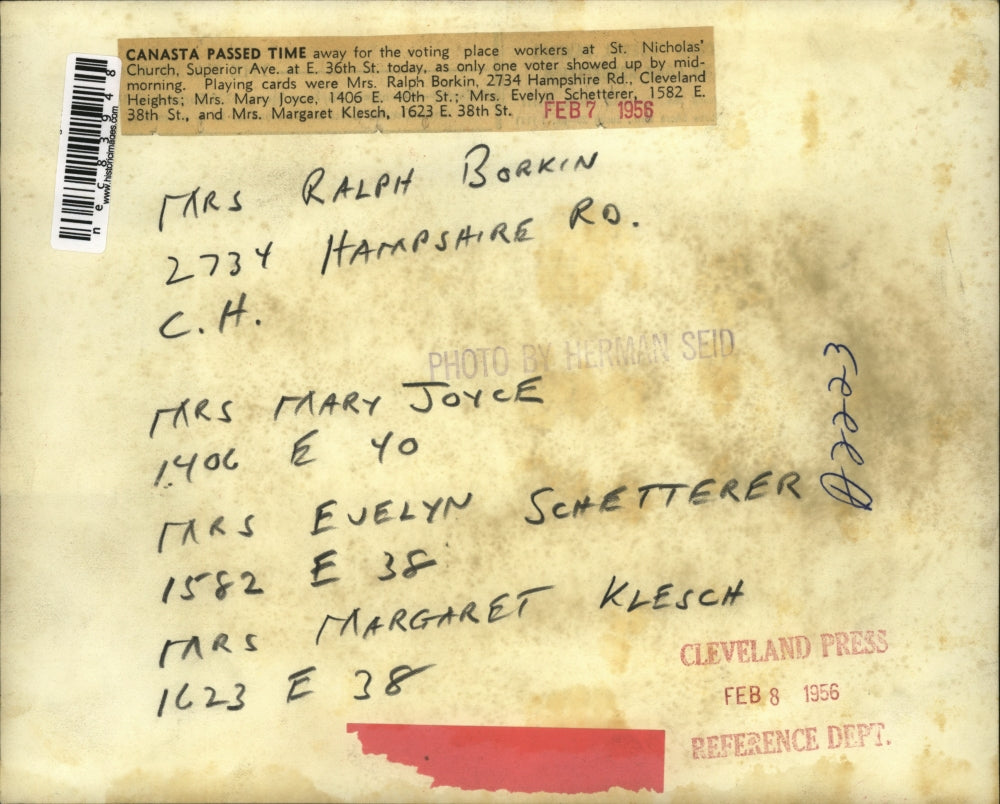 CANASTA PASSED TIME away for the voting place workers at St. Nicholas'
Church, Superior Ave. at E. 36th St. today, as only one voter showed up by mid-
morning. Playing cards were Mrs. Ralph Borkin, 2734 Hampshire Rd., Cleveland
Heights; Mrs. Mary Joyce, 1406 E. 40th St.; Mrs. Evelyn Schetterer, 1582 E.
38th St., and Mrs. Margaret Klesch, 1623 E. 38th St. FEB 7 1956
nec83948
www.historicimages.com
MRS RALPH BORKIN
2734 HAMPSHIRE RD.
C.H.
PHOTO BY HERMAN SEID
MRS MARY JOYCE
1406 E 40
MRS EVELYN SCHETTERER
1582 E 38
MRS MARGARET KLESCH
1623 E 38
A2223
CLEVELAND PRESS
FEB 8 1956
REFERENCE DEPT.